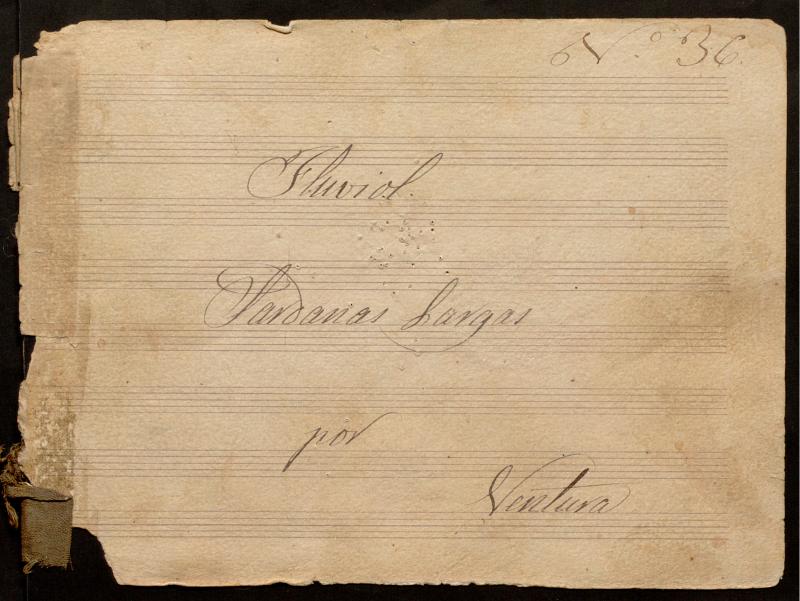 Nº 36.
Fluviol.
Sardanas Largas
por
Ventura